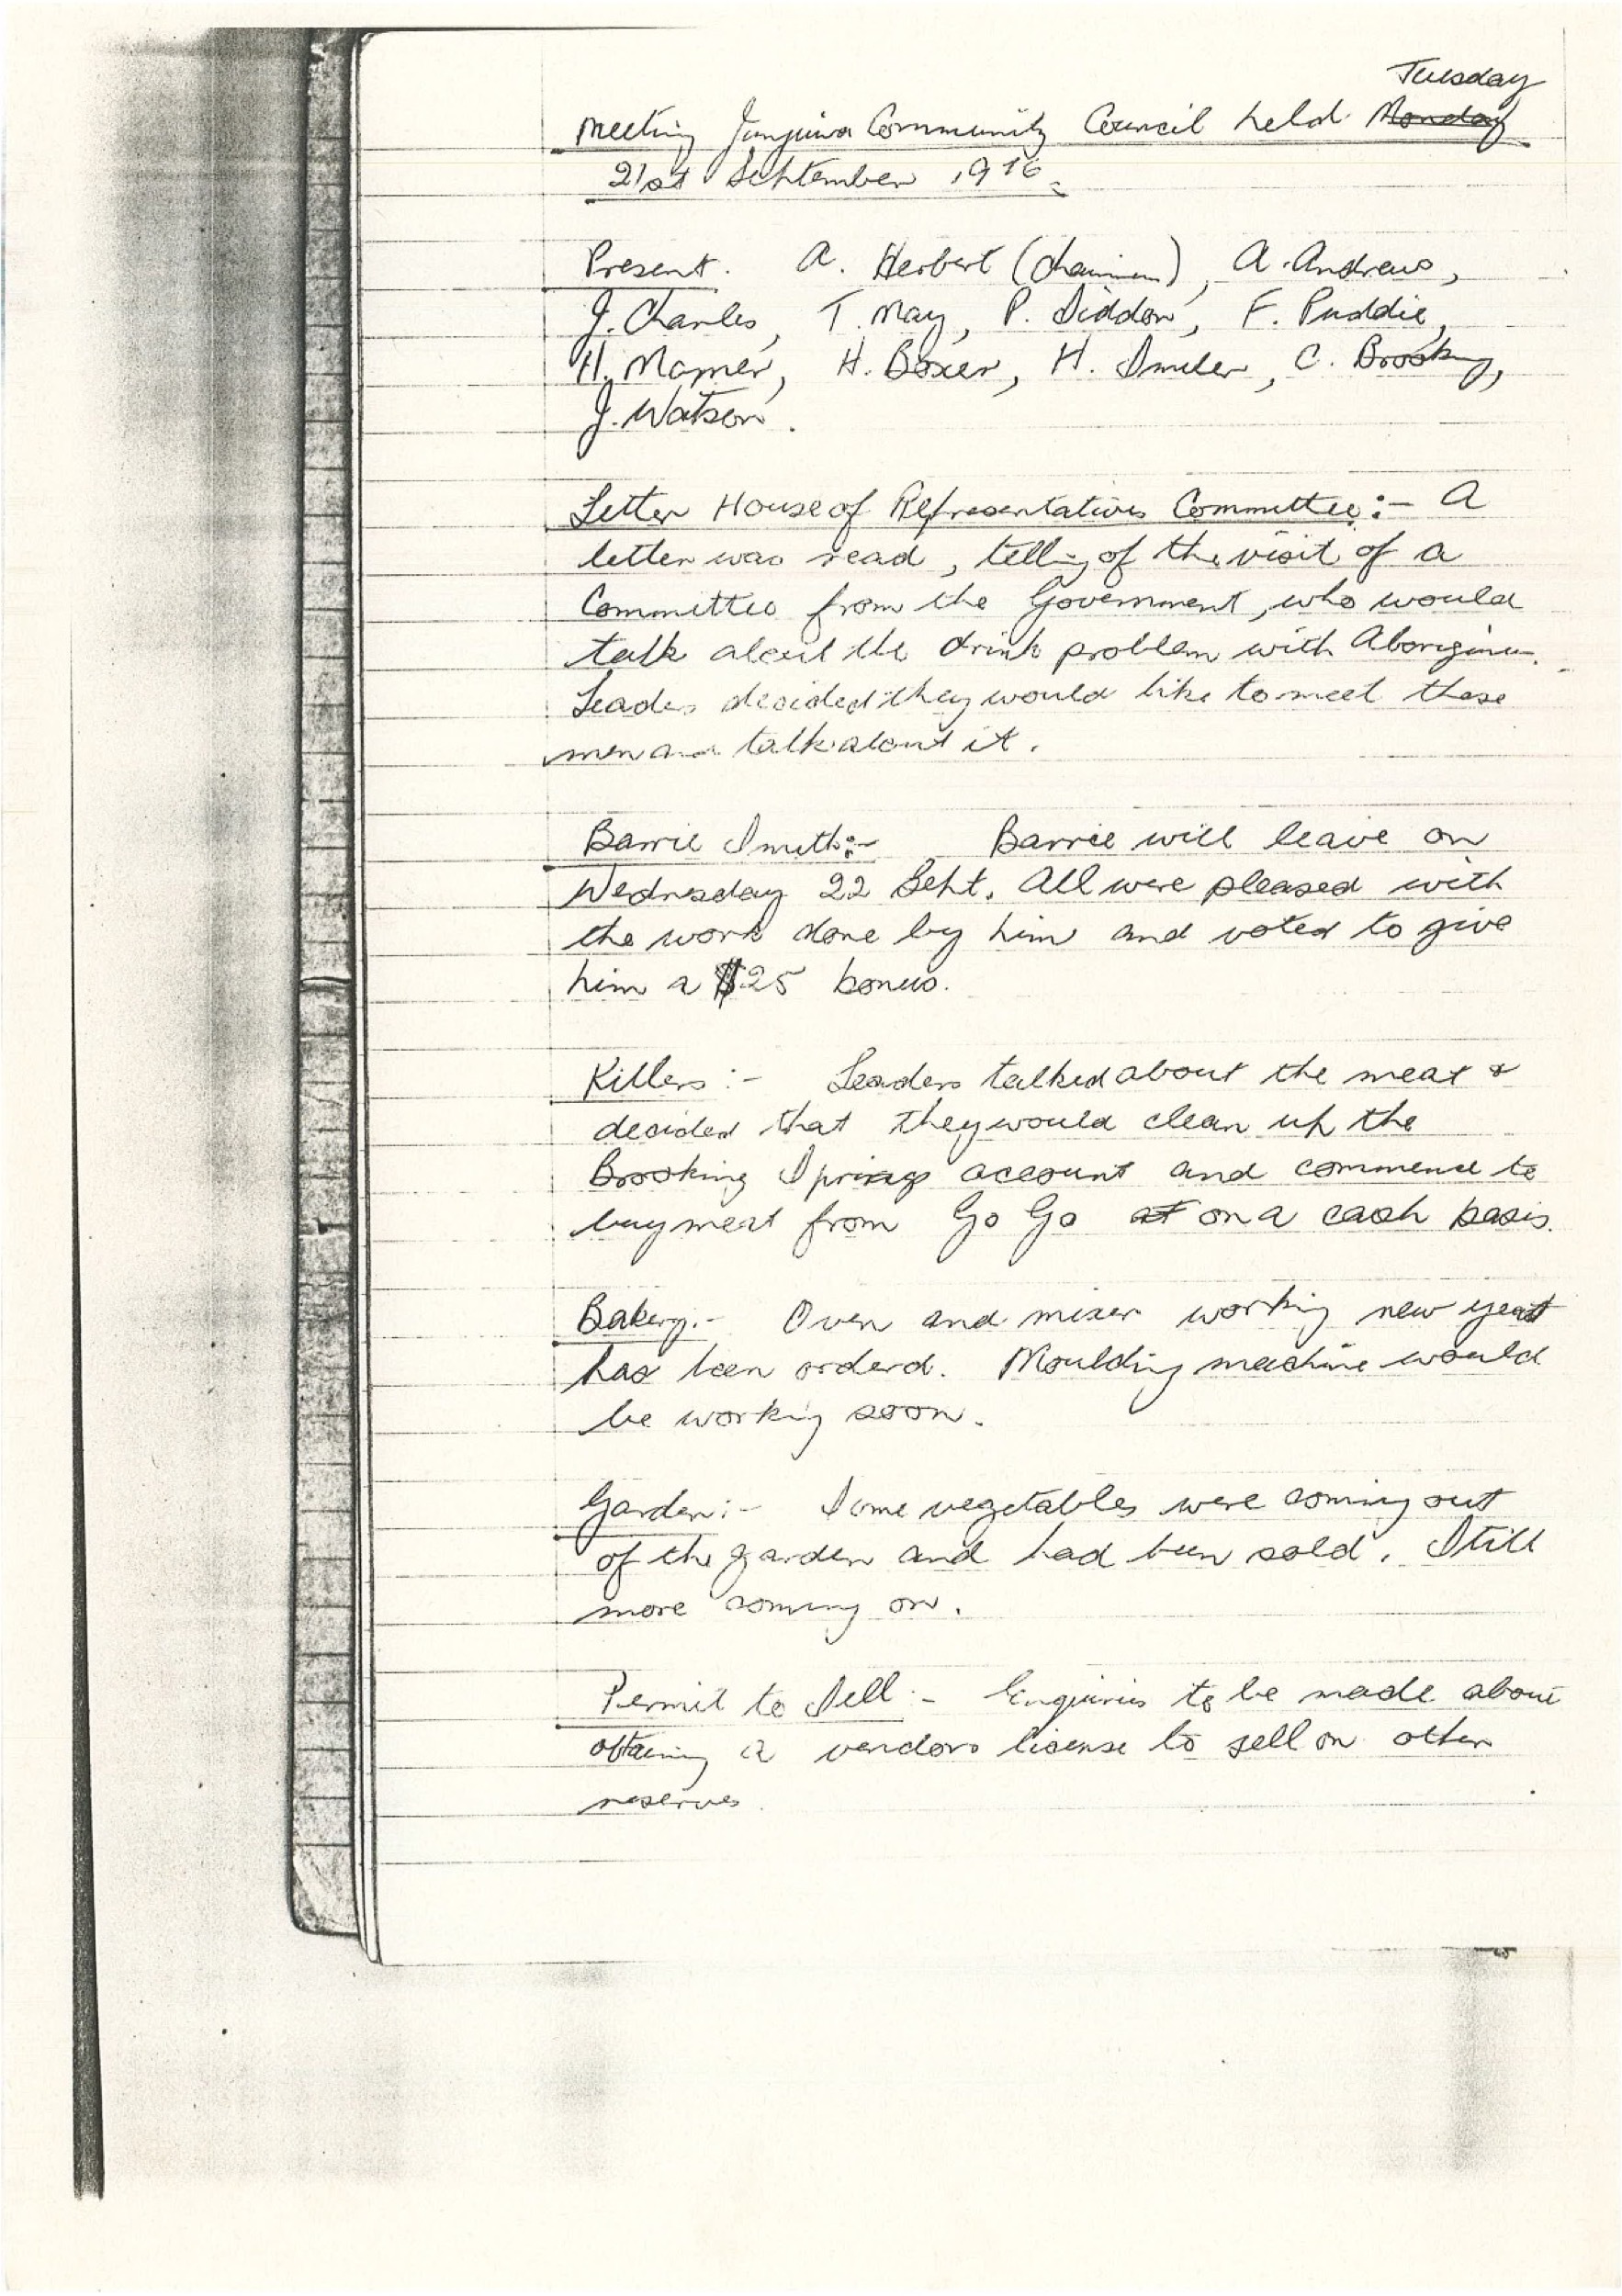 Tuesday
Meeting Junjuwa Community Council held ~~Monday~~
21st September 1976.
Present. A. Herbert (Chairman), A. Andrews,
J. Charles, T. May, P. Siddon, F. Puddie,
H. Mamer, H. Boxer, H. Smiler, C. Brooking,
J. Watson.
Letter House of Representatives Committee:- A
letter was read, telling of the visit of a
Committee from the Government, who would
talk about the drink problem with Aborigines.
Leaders decided they would like to meet these
men and talk about it.
Barrie Smith:- Barrie will leave on
Wednesday 22 Sept. All were pleased with
the work done by him and voted to give
him a $25 bonus.
Killers:- Leaders talked about the meat &
decided that they would clean up the
Brooking Springs account and commence to
buy meat from Go Go ~~at~~ on a cash basis.
Bakery:- Oven and mixer working new yeast
has been orderd. Moulding machine would
be working soon.
Garden:- Some vegetables were coming out
of the garden and had been sold. Still
more coming on.
Permit to Sell:- Enquiries to be made about
obtaining a vendors license to sell on other
reserves.